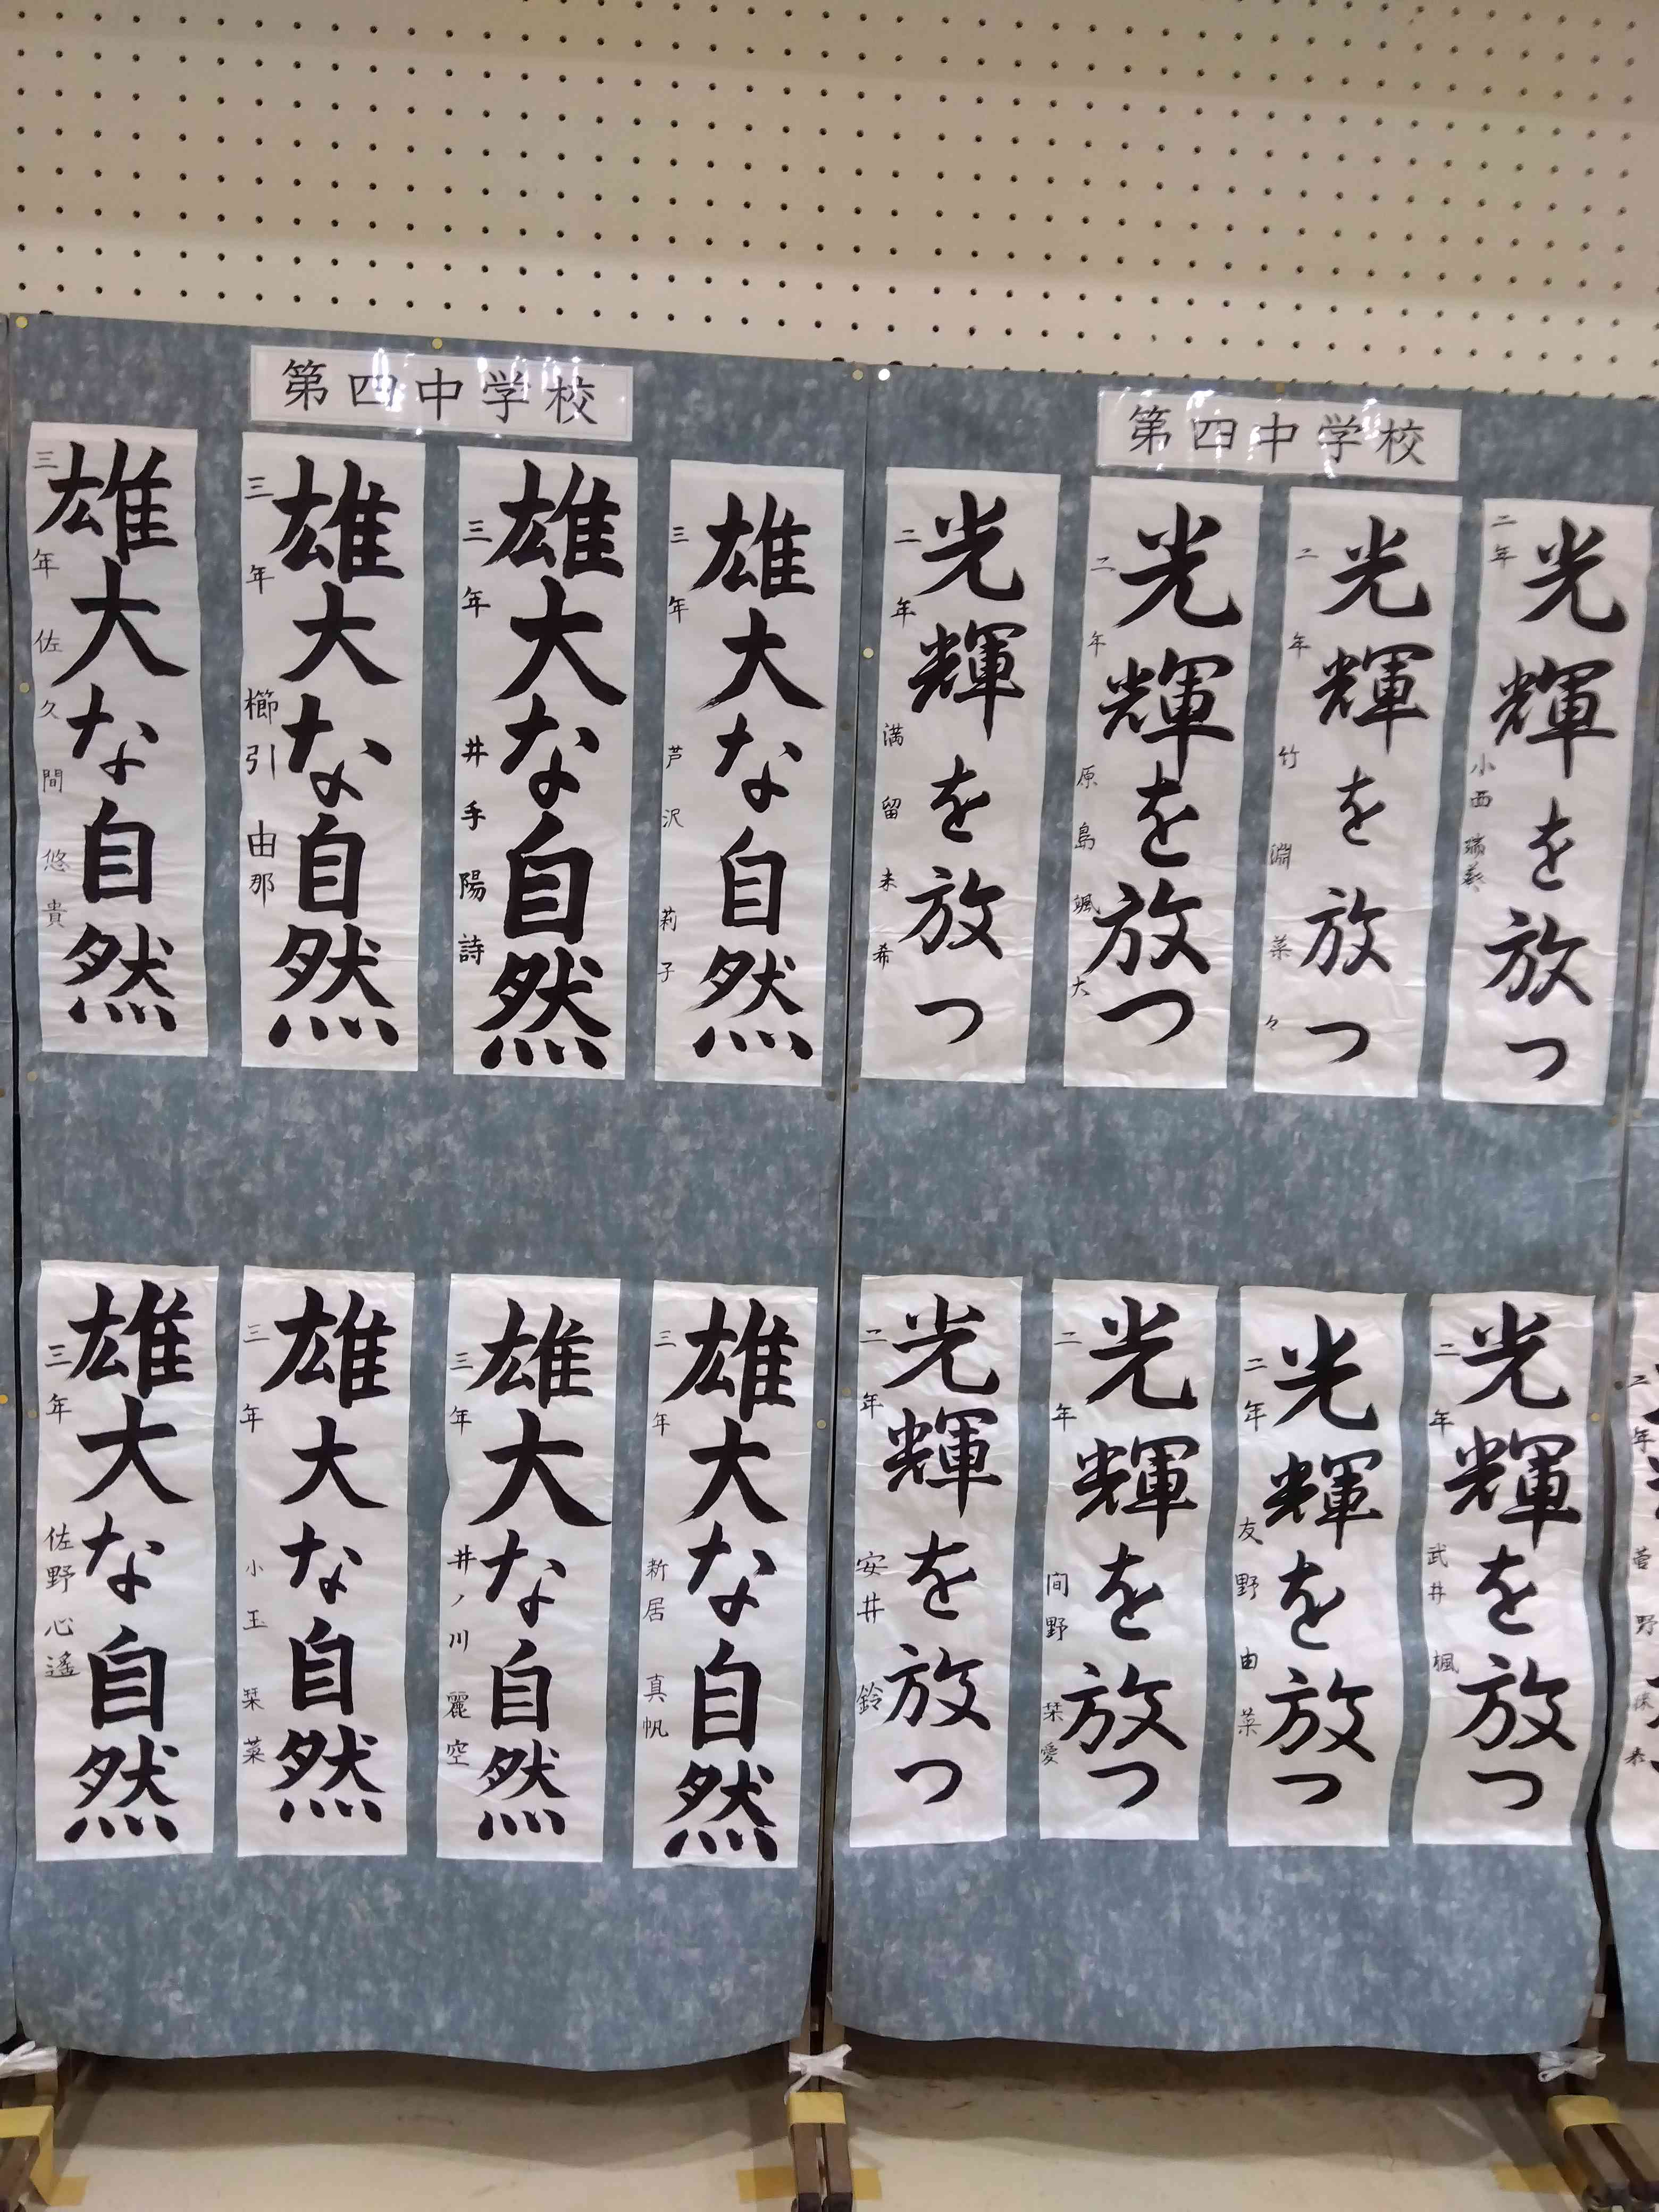 第四中学校
雄大な自然
三年 佐久間 悠貴
雄大な自然
三年 櫛引 由那
雄大な自然
三年 井手 陽詩
雄大な自然
三年 芦沢 莉子
雄大な自然
三年 佐野 心遙
雄大な自然
三年 小玉 栞菜
雄大な自然
三年 井ノ川 麗空
雄大な自然
三年 新居 真帆
第四中学校
光輝を放つ
二年 満留 未希
光輝を放つ
二年 原島 颯大
光輝を放つ
二年 竹淵 菜々
光輝を放つ
二年 小西 瑞葵
光輝を放つ
二年 安井 鈴
光輝を放つ
二年 間野 栞愛
光輝を放つ
二年 友野 由菜
光輝を放つ
二年 武井 楓
二年 菅野